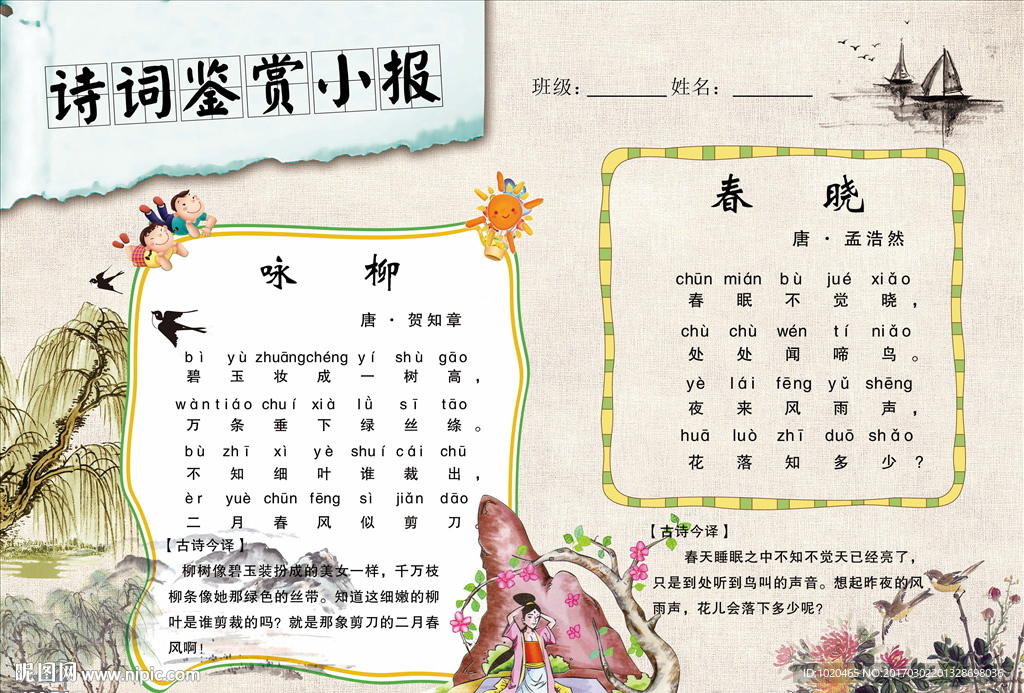 诗词鉴赏小报
班级：________ 姓名：________
咏 柳
唐 · 贺知章
bì yù zhuāngchéng yí shù gāo
碧 玉 妆 成 一 树 高 ，
wàn tiáo chuí xià lǜ sī tāo
万 条 垂 下 绿 丝 绦 。
bù zhī xì yè shuí cái chū
不 知 细 叶 谁 裁 出 ，
èr yuè chūn fēng sì jiǎn dāo
二 月 春 风 似 剪 刀 。
【古诗今译】
柳树像碧玉装扮成的美女一样，千万枝
柳条像她那绿色的丝带。知道这细嫩的柳
叶是谁剪裁的吗？就是那象剪刀的二月春
风啊！
春 晓
唐 · 孟浩然
chūn mián bù jué xiǎo
春 眠 不 觉 晓 ，
chù chù wén tí niǎo
处 处 闻 啼 鸟 。
yè lái fēng yǔ shēng
夜 来 风 雨 声 ，
huā luò zhī duō shǎo
花 落 知 多 少 ？
【古诗今译】
春天睡眠之中不知不觉天已经亮了，
只是到处听到鸟叫的声音。想起昨夜的风
雨声，花儿会落下多少呢？
昵图网 www.nipic.com
ID:1020465 NO:20170302201328698036